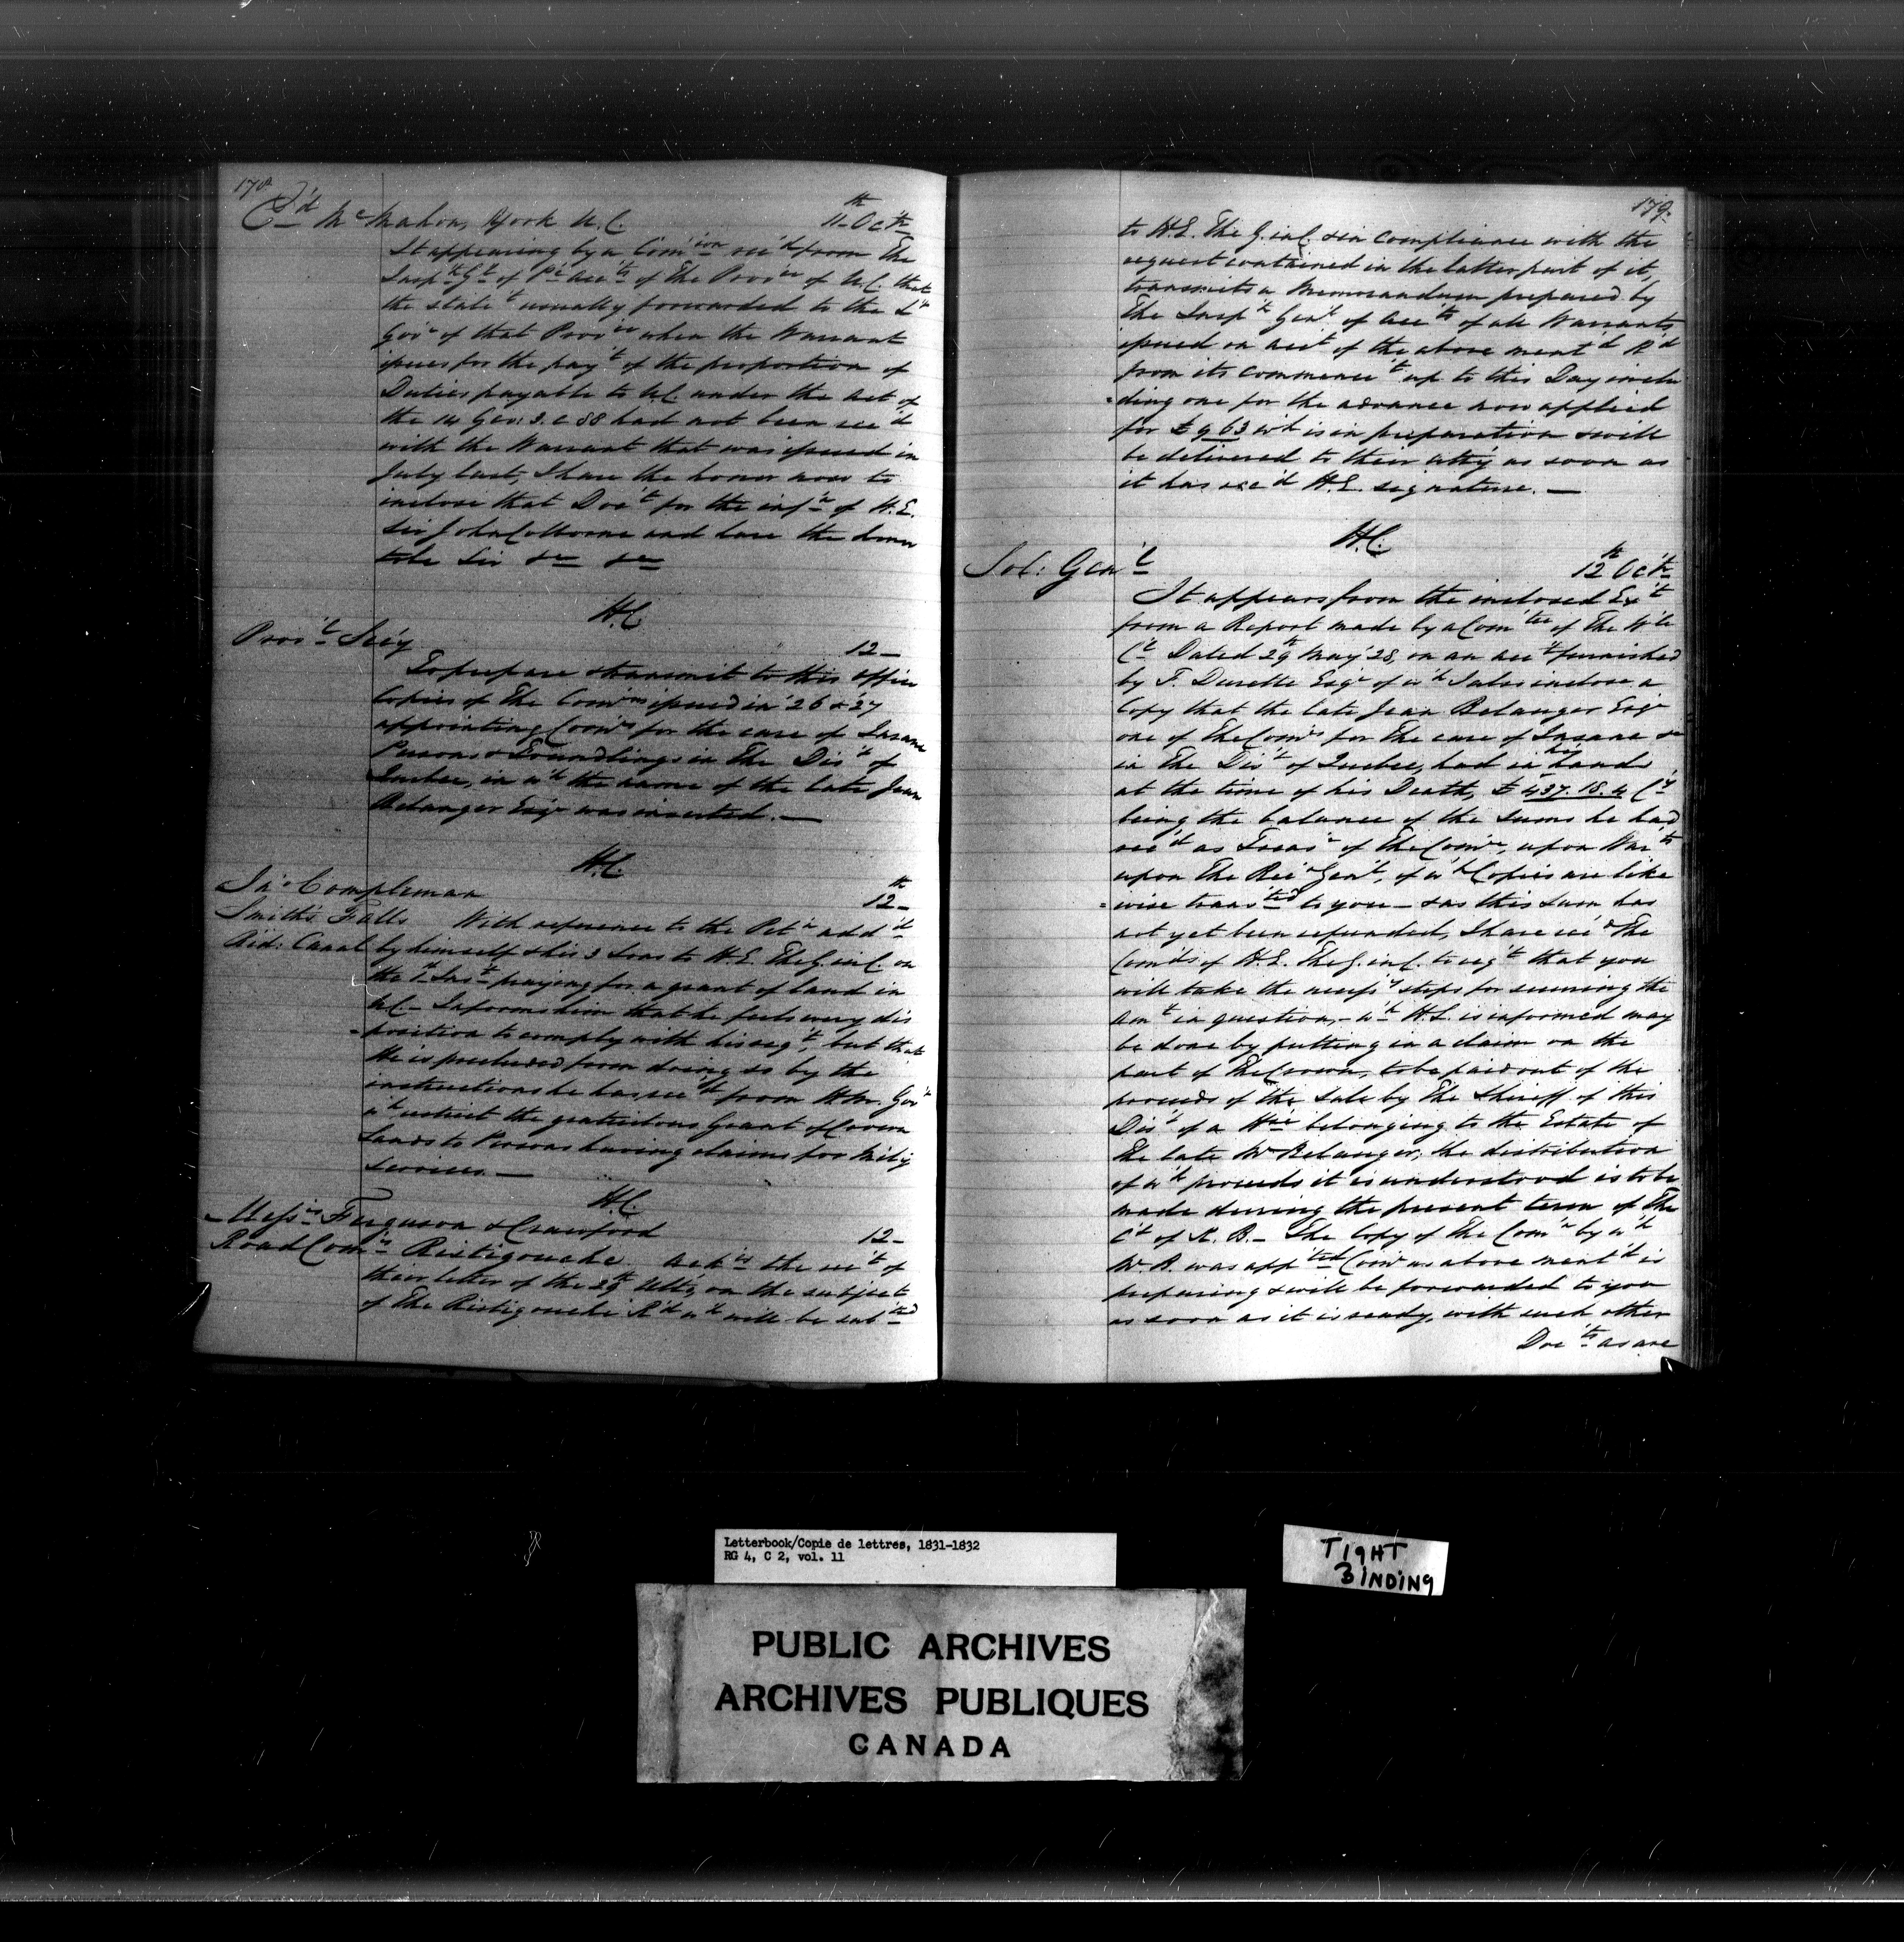 178
E'd McMahon, York U.C. 11th Oct'r
It appearing by a Com'ion rec'd from The
Insp'r G'l of P'c Acc'ts of The Prov'ce of U.C. that
the state't usually forwarded to the L't
Gov'r of that Prov'ce when the Warrant
issues for the pay't of the proportion of
Duties payable to U.C. under the Act of
the 14 Geo: 3. c 88 had not been rec'd
with the Warrant that was issued in
July last, I have the honor now to
inclose that Doc't for the inf'n of H.E.
Sir John Colborne and have the honor
to be Sir &c &c
H.C.
Prov'l Sec'y 12 –
To prepare & transmit to this Office
Copies of The Com'ns issued in '26 & '27
appointing Com'rs for the care of Insane
Persons & Foundlings in The Dis't of
Quebec, in w'h the name of the late Jean
Belanger Esq'r was inserted. —
H.C.
Jn'o Compleman 12th –
Smith's Falls With reference to the Pet'n add'd
Rid: Canal by himself & his 3 Sons to H.E. The G. in C. on
the 1st Ins't praying for a grant of land in
U.C – Informs him that he feels every dis
=position to comply with his req't, but that
He is precluded from doing so by the
instructions he has rec'd from H.M. Gov't
w'h restrict the gratuitous Grant of Crown
Lands to Persons having claims for Milit'y
Services. —
H.C.
Mess'rs Ferguson & Crawford 12 –
Road Com'rs Ristigouche. Ack'es the rec't of
their letter of the 29th Ult'o, on the subject
of The Ristigouche R'd w'h will be sub'ted
179.
to H.E. The G. in C. & in compliance with the
request contained in the latter part of it,
transmits a Memorandum prepared by
The Insp'r Gen'l of Acc'ts of all Warrants
issued on acc't of the above ment'd R'd
from its commence't up to this Day inclu
=ding one for the advance now applied
for £963 w'h is in preparation & will
be delivered to their att'y as soon as
it has rec'd H.E. signature. —
H.C.
Sol: Gen'l 12th Oct'r
It appears from the inclosed Ex't
from a Report made by a Com'tee of The W'le
C'l Dated 29th May '28, on an acc't furnished
by F. Durette Esq'r of w'h I also inclose a
Copy that the late Jean Belanger Esq'r
one of The Com'rs for The care of Insane &c
in The Dis't of Quebec, had in his hands
at the time of his Death, £437.18.4 C'y
being the balance of the Sums he had
rec'd as Treas'r of The Com'rs, upon War'ts
upon The Rec'r Gen'l, of w'h Copies are like
=wise trans'ted to you – & as this sum has
not yet been refunded, I have rec'd The
Com'ds of H.E. The G. in C. to req't that you
will take the necess'y steps for securing the
am't in question, – w'h H.E. is informed may
be done by putting in a claim on the
part of The Crown, to be paid out of the
proceeds of the Sale by The Sheriff of this
Dis't of a H'se belonging to the Estate of
the late Mr Belanger; the distribution
of w'h proceeds it is understood is to be
made during the present term of The
C't of K. B. – The Copy of The Com'n by w'h
Mr. B. was app'ted Com'r as above ment'd is
preparing & will be forwarded to you
as soon as it is ready, with such other
Doc'ts as are
Letterbook/Copie de lettres, 1831-1832
RG 4, C 2, vol. 11
TIGHT
BINDING
PUBLIC ARCHIVES
ARCHIVES PUBLIQUES
CANADA